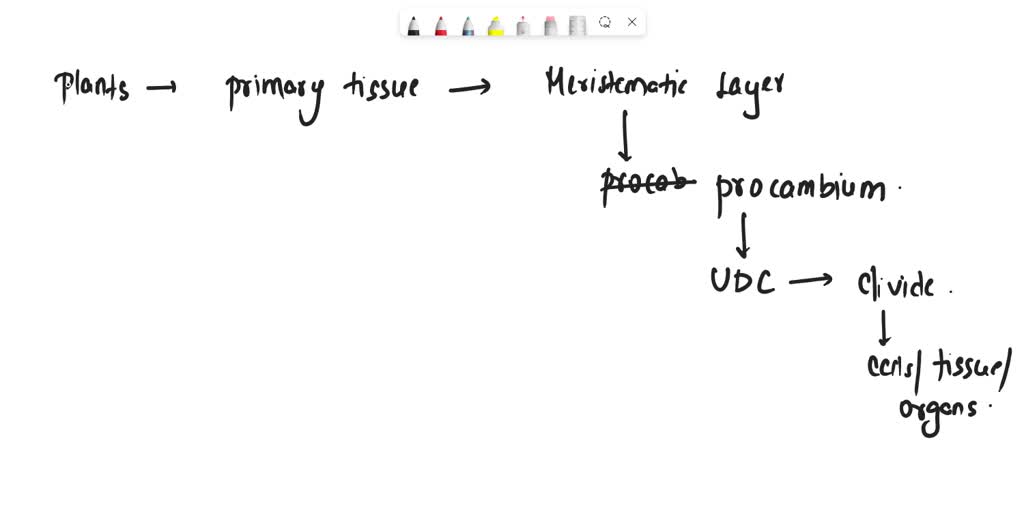 Plants → primary tissue → Meristematic Layer
↓
procab procambium.
↓
UDC → divide.
↓
cells/ tissue/
organs.